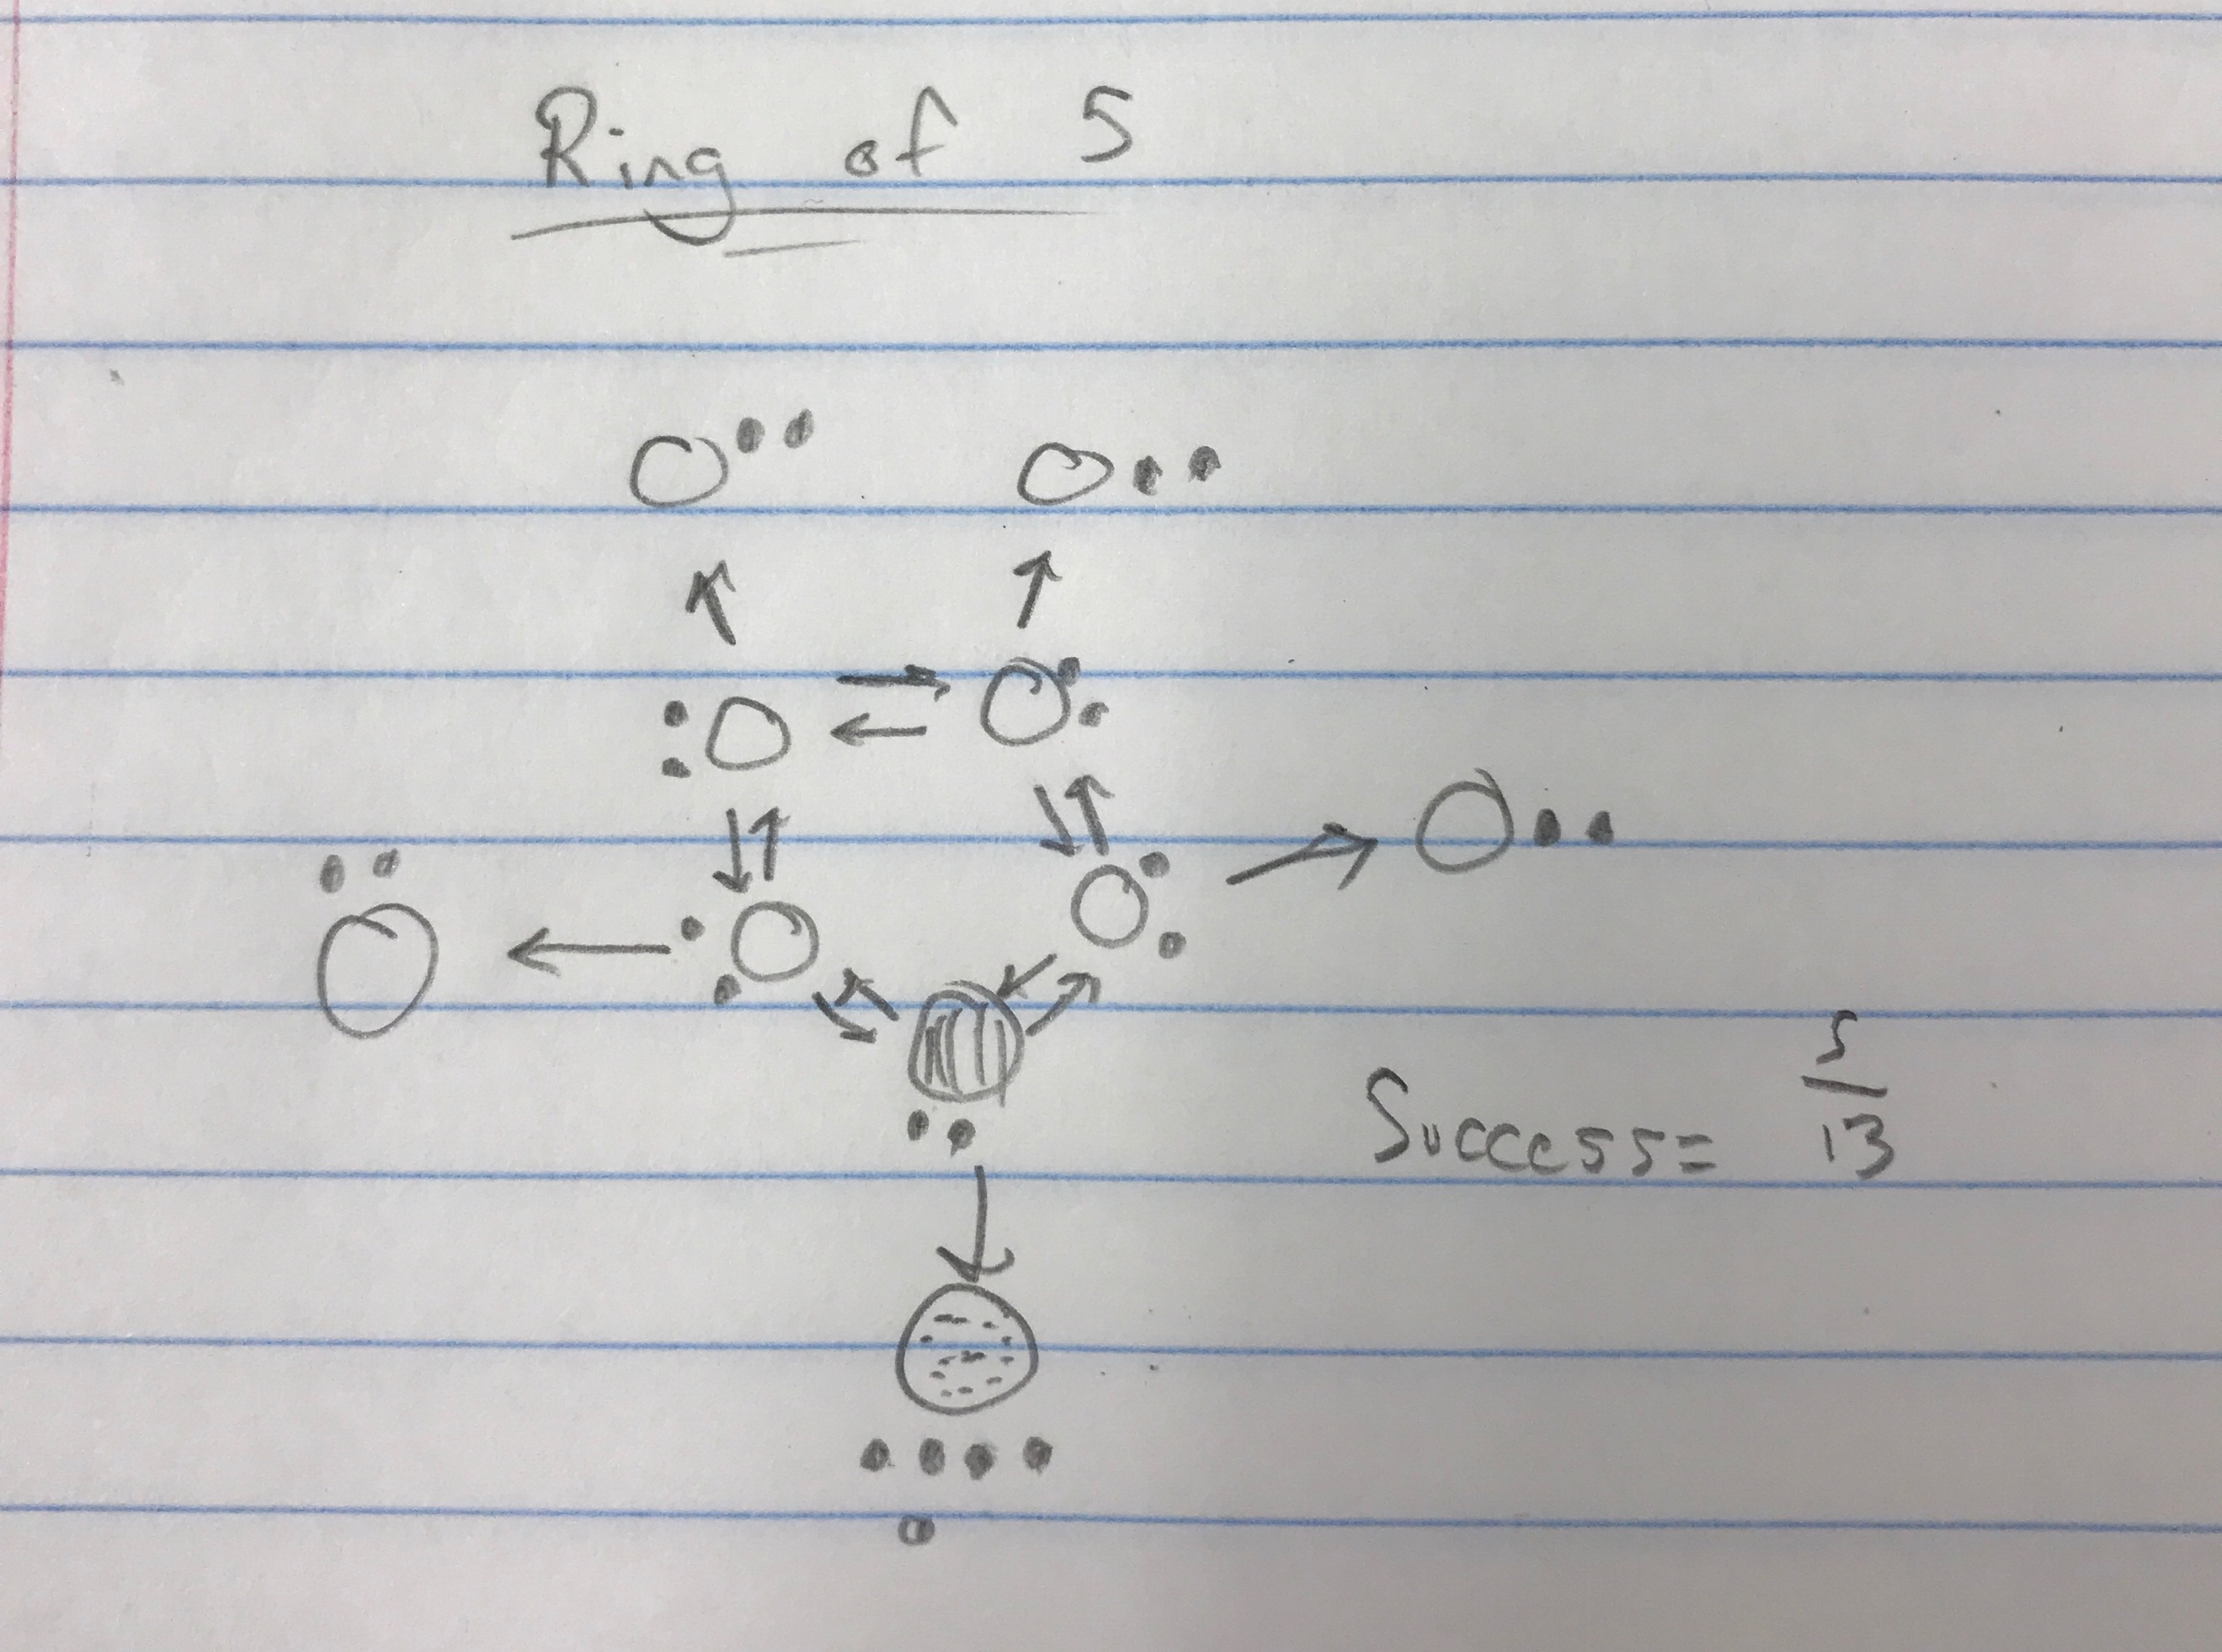 Ring of 5
Success = 5/13